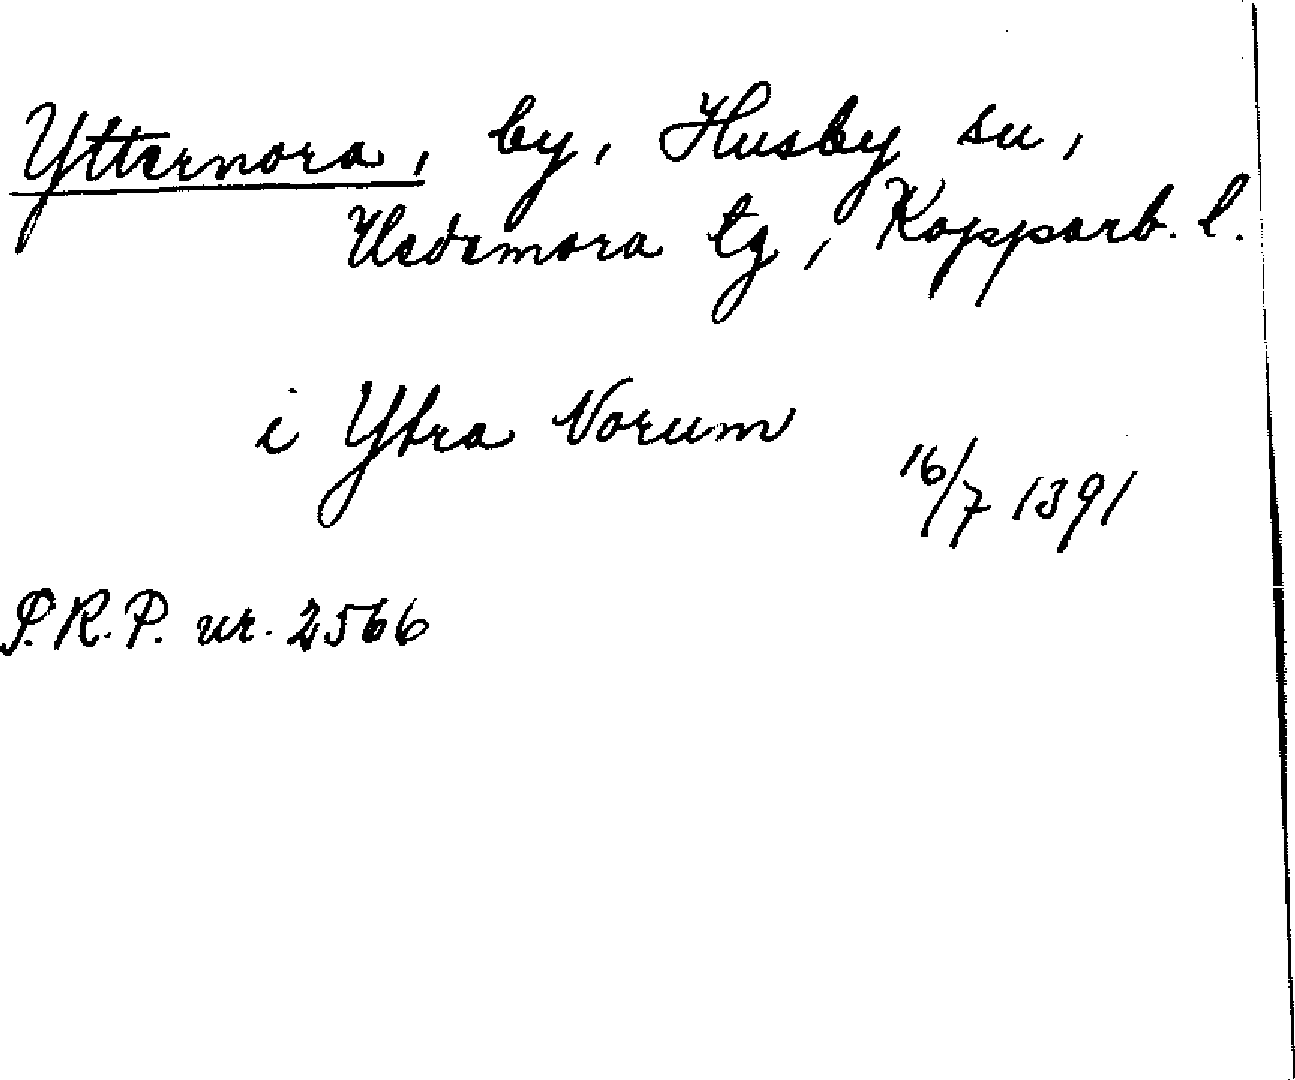 Ytternora, by, Husby sn,
Hedemora tg, Kopparb. l.
i Ytra Norum
16/7 1391
P.R.P. nr. 2566